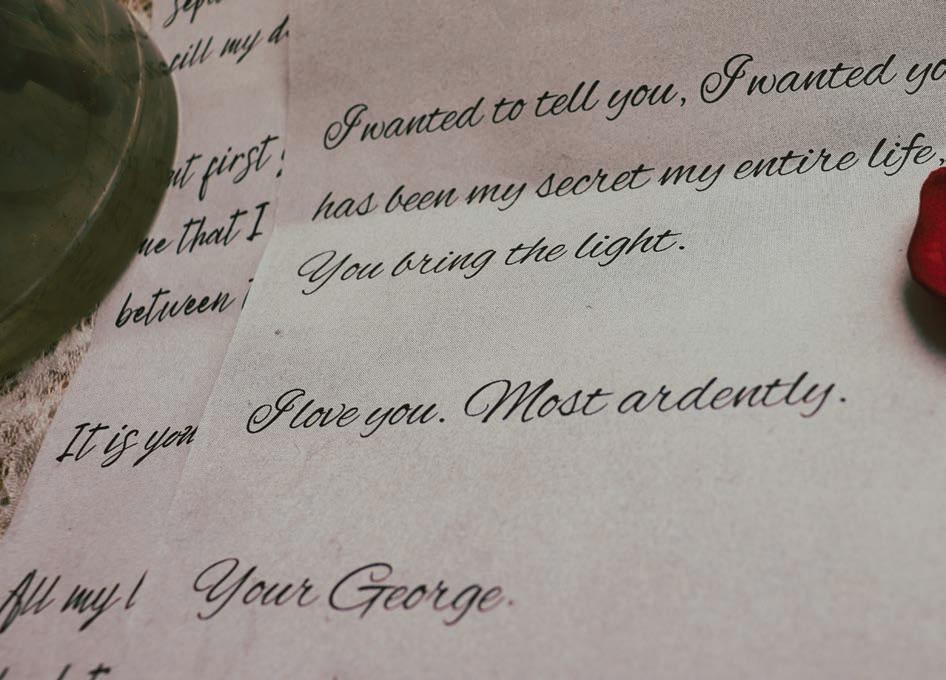 will my
first
that I
between
It is you
All my
I wanted to tell you, I wanted
has been my secret my entire life,
You bring the light.
I love you. Most ardently.
Your George.